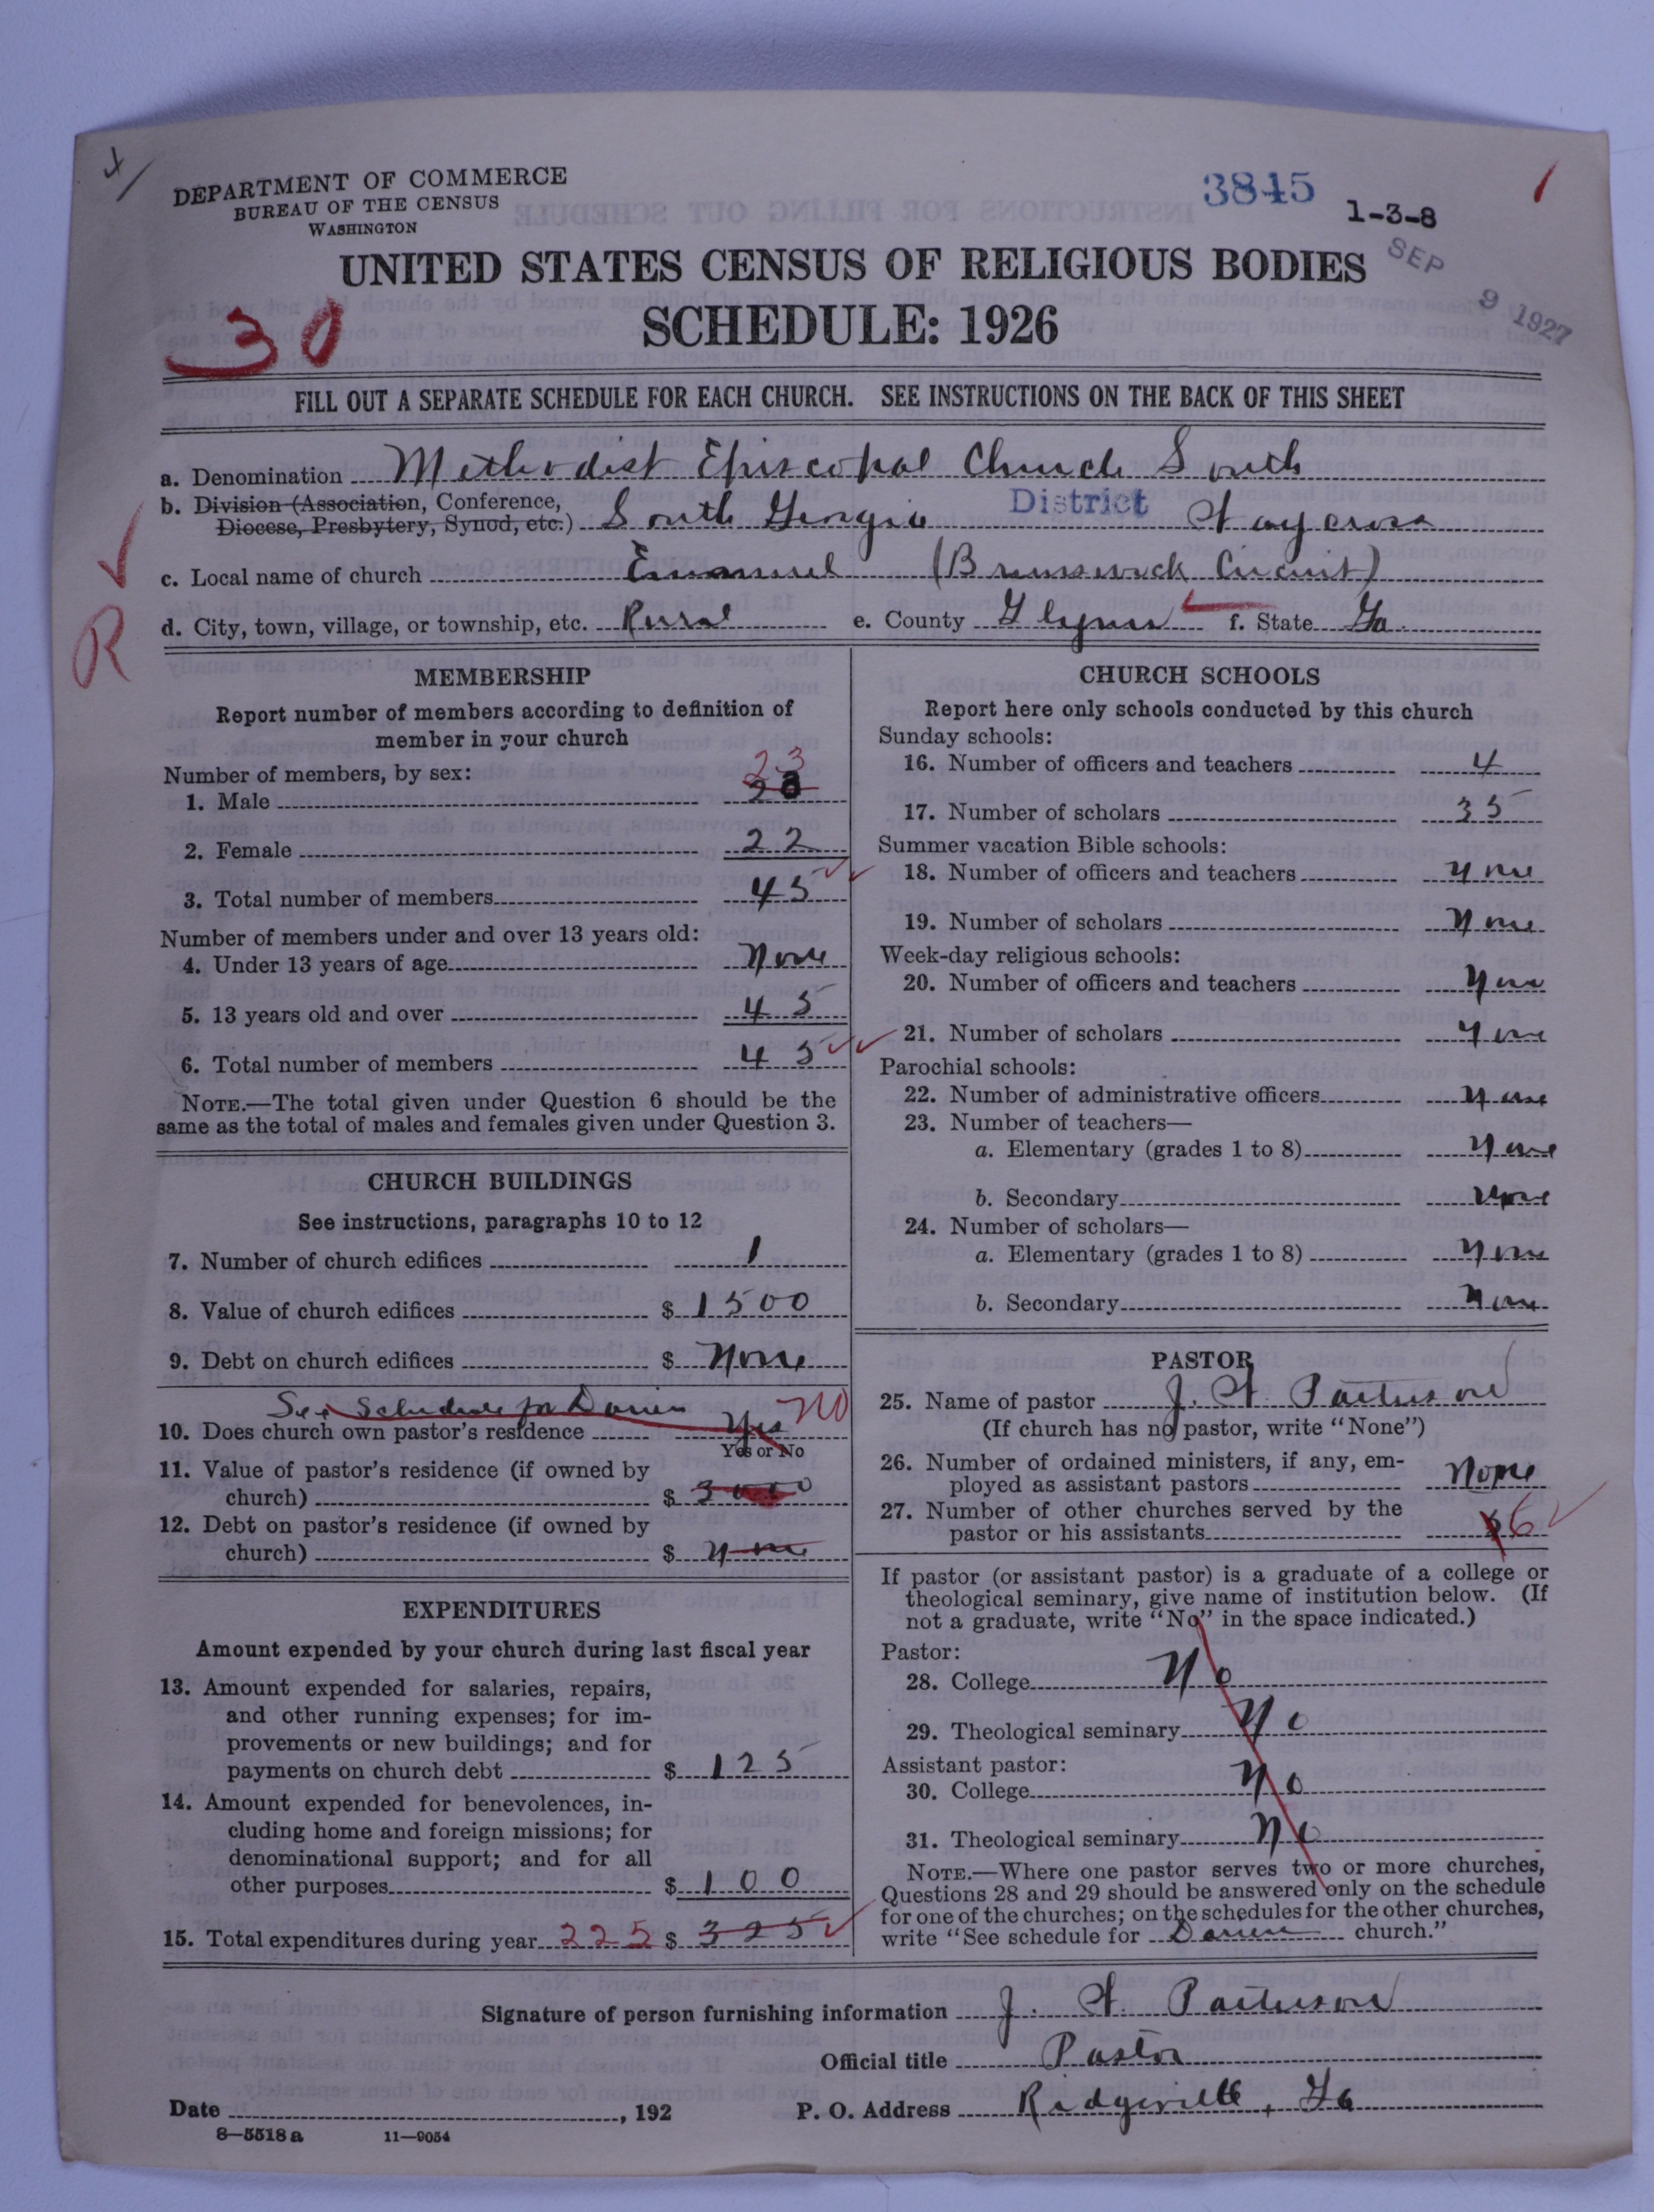 DEPARTMENT OF COMMERCE
BUREAU OF THE CENSUS
WASHINGTON
3845
1-3-8
SEP 9 1927
UNITED STATES CENSUS OF RELIGIOUS BODIES
SCHEDULE: 1926
30
FILL OUT A SEPARATE SCHEDULE FOR EACH CHURCH. SEE INSTRUCTIONS ON THE BACK OF THIS SHEET
a. Denomination Methodist Episcopal Church South
b. Division (Association, Conference,
Diocese, Presbytery, Synod, etc.) South Georgia District Waycross
c. Local name of church Emanuel (Brunswick Circuit)
R
d. City, town, village, or township, etc. Rural e. County Glynn f. State Ga.
MEMBERSHIP
Report number of members according to definition of
member in your church
Number of members, by sex:
23
1. Male
2. Female 22
3. Total number of members 45
Number of members under and over 13 years old:
4. Under 13 years of age None
5. 13 years old and over 45
6. Total number of members 45
NOTE.—The total given under Question 6 should be the
same as the total of males and females given under Question 3.
CHURCH BUILDINGS
See instructions, paragraphs 10 to 12
7. Number of church edifices 1
8. Value of church edifices $ 1500
9. Debt on church edifices $ None
See Schedule for Darien
10. Does church own pastor's residence Yes NO
Yes or No
11. Value of pastor's residence (if owned by
church) $ 3000
12. Debt on pastor's residence (if owned by
church) $ None
EXPENDITURES
Amount expended by your church during last fiscal year
13. Amount expended for salaries, repairs,
and other running expenses; for im-
provements or new buildings; and for
payments on church debt $ 125
14. Amount expended for benevolences, in-
cluding home and foreign missions; for
denominational support; and for all
other purposes $ 100
15. Total expenditures during year 225 $ 325
CHURCH SCHOOLS
Report here only schools conducted by this church
Sunday schools:
16. Number of officers and teachers 4
17. Number of scholars 35
Summer vacation Bible schools:
18. Number of officers and teachers None
19. Number of scholars None
Week-day religious schools:
20. Number of officers and teachers None
21. Number of scholars None
Parochial schools:
22. Number of administrative officers None
23. Number of teachers—
a. Elementary (grades 1 to 8) None
b. Secondary None
24. Number of scholars—
a. Elementary (grades 1 to 8) None
b. Secondary None
PASTOR
25. Name of pastor J. W. Patterson
(If church has no pastor, write "None")
26. Number of ordained ministers, if any, em-
ployed as assistant pastors None
27. Number of other churches served by the
pastor or his assistants 6
If pastor (or assistant pastor) is a graduate of a college or
theological seminary, give name of institution below. (If
not a graduate, write "No" in the space indicated.)
Pastor:
28. College No
29. Theological seminary No
Assistant pastor:
30. College No
31. Theological seminary No
NOTE.—Where one pastor serves two or more churches,
Questions 28 and 29 should be answered only on the schedule
for one of the churches; on the schedules for the other churches,
write "See schedule for Darien church."
Signature of person furnishing information J. W. Patterson
Official title Pastor
Date , 192 P. O. Address Ridgeville, Ga
8—5518 a 11—9054